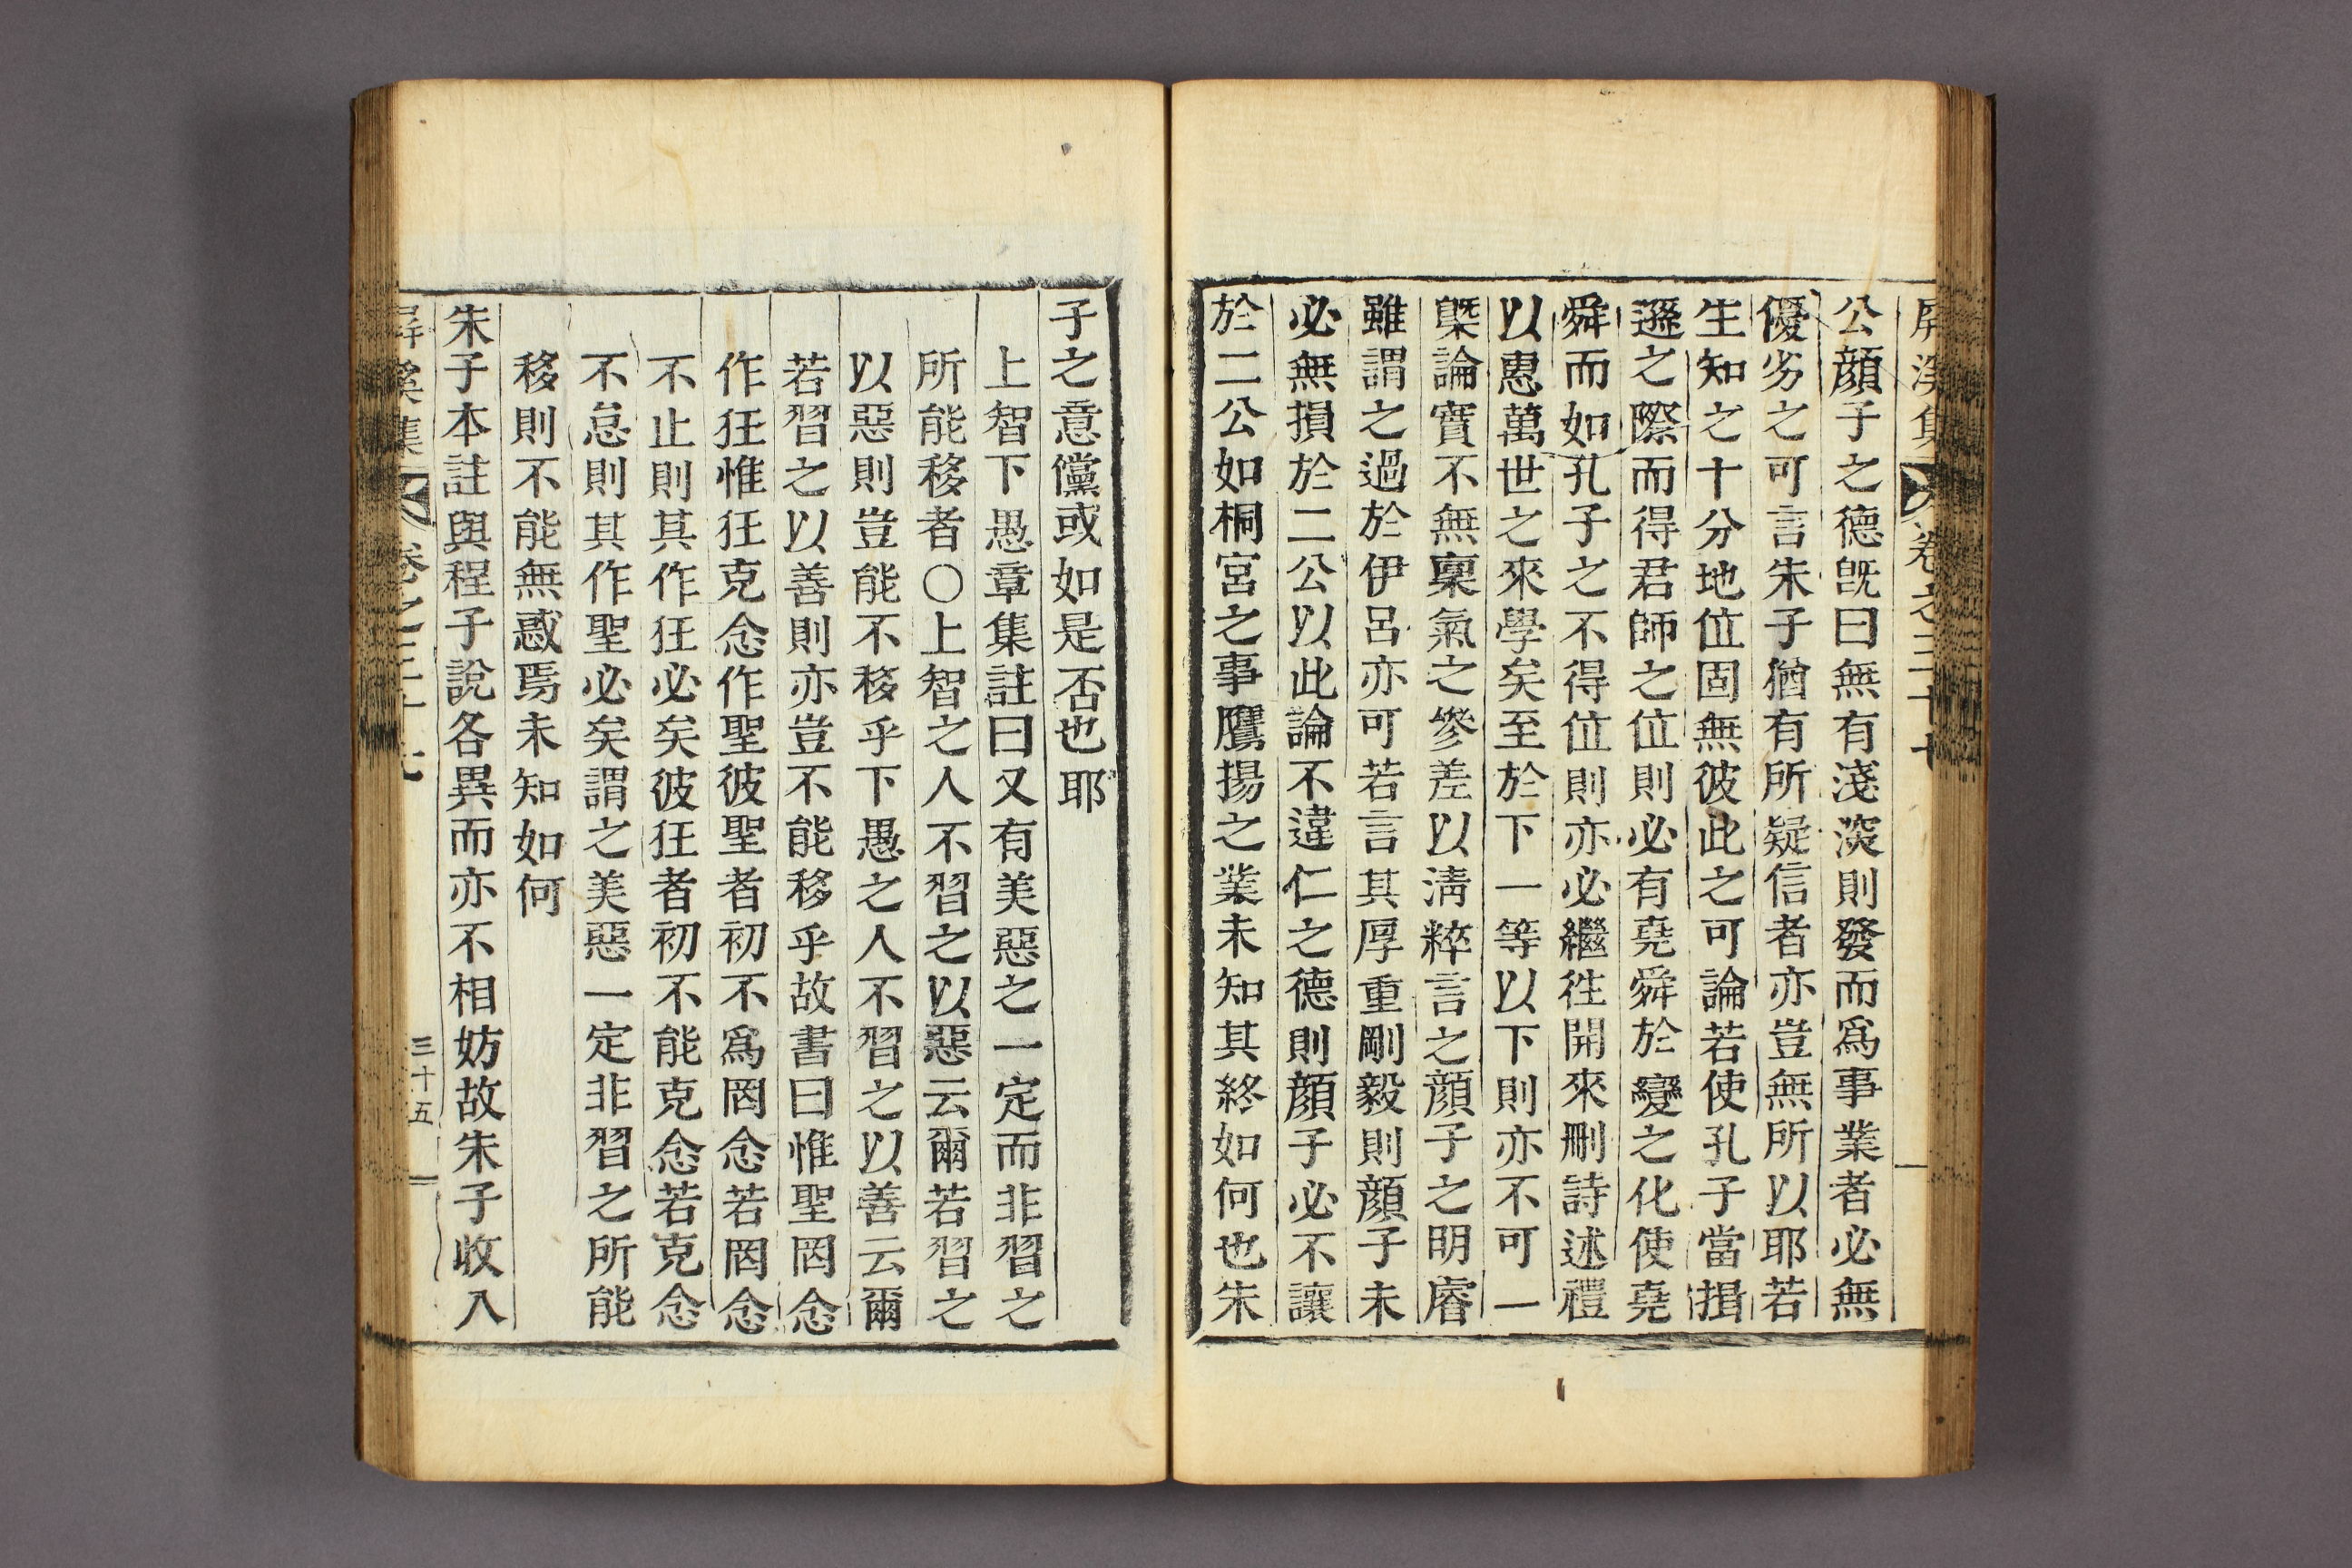 公顏子之德旣曰無有淺深則發而爲事業者必無
優劣之可言朱子猶有所疑信者亦豈無所以耶若
生知之十分地位固無彼此之可論若使孔子當揖
遜之際而得君師之位則必有堯舜於變之化使堯
舜而如孔子之不得位則亦必繼徃開來刪詩述禮
以惠萬世之來學矣至於下一等以下則亦不可一
槩論實不無稟氣之參差以淸粹言之顏子之明睿
雖謂之過於伊呂亦可若言其厚重剛毅則顏子未
必無損於二公以此論不違仁之德則顏子必不讓
於二公如桐宮之事鷹揚之業未知其終如何也朱
子之意儻或如是否也耶
上智下愚章集註曰又有美惡之一定而非習之
所能移者○上智之人不習之以惡云爾若習之
以惡則豈能不移乎下愚之人不習之以善云爾
若習之以善則亦豈不能移乎故書曰惟聖罔念
作狂惟狂克念作聖彼聖者初不爲罔念若罔念
不止則其作狂必矣彼狂者初不能克念若克念
不怠則其作聖必矣謂之美惡一定非習之所能
移則不能無惑焉未知如何
朱子本註與程子說各異而亦不相妨故朱子收入
三十五